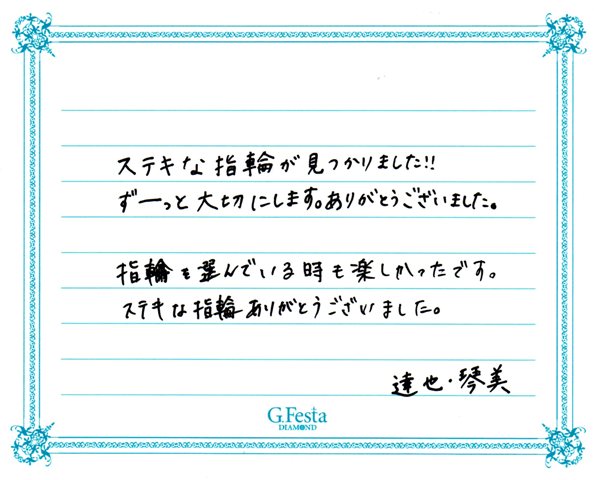 ステキな指輪が見つかりました!!
ずーっと大切にします。ありがとうございました。
指輪を選んでいる時も楽しかったです。
ステキな指輪ありがとうございました。
達也・琴美
G.Festa
DIAMOND